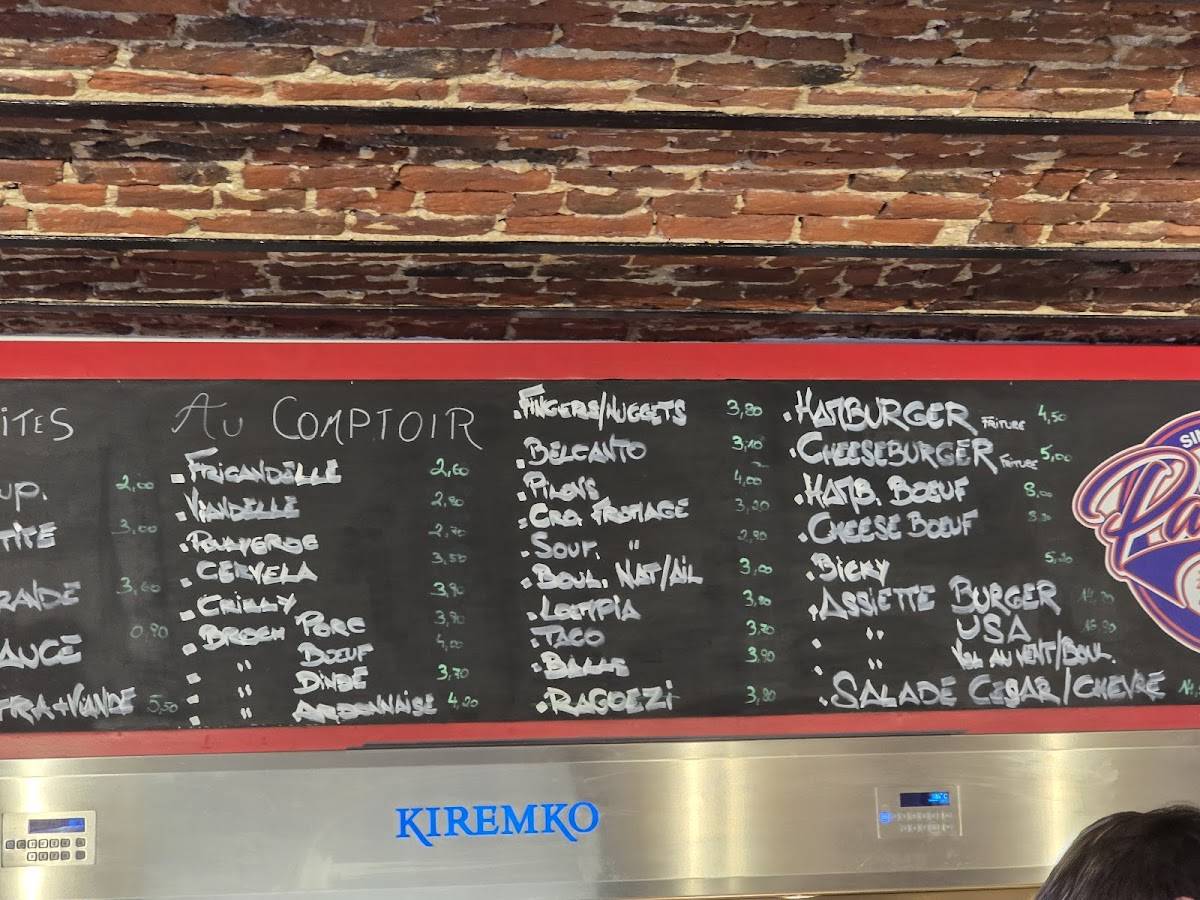 ITES
UP. 2,00
TITE 3,00
RANDE 3,60
AUCE 0,90
FRA+VIANDE 5,50
AU COMPTOIR
.FRICANDELLE 2,60
.VIANDELLE 2,80
.POULYCROC 2,70
.CERVELA 3,50
.CRIZLY 3,90
.BROCH PORC 3,90
. " BOEUF 4,00
. " DINDE 3,70
. " ARDENNAISE 4,20
.FINGERS/NUGGETS 3,80
.BELCANTO 3,10
.PILONS 4,00
.CRO. FROMAGE 3,20
.SOUF. " 2,80
.BOUL. NAT/AIL 3,00
.LOEMPIA 3,80
.TACO 3,70
.BALLS 3,90
.RAGOEZI 3,80
.HAMBURGER FRITURE 4,50
.CHEESEBURGER FRITURE 5,00
.HAMB. BOEUF 8,00
.CHEESE BOEUF
.BICKY
.ASSIETTE BURGER
. " USA
. " VOL AU VENT/BOUL.
.SALADE CESAR/CHEVRE
KIREMKO